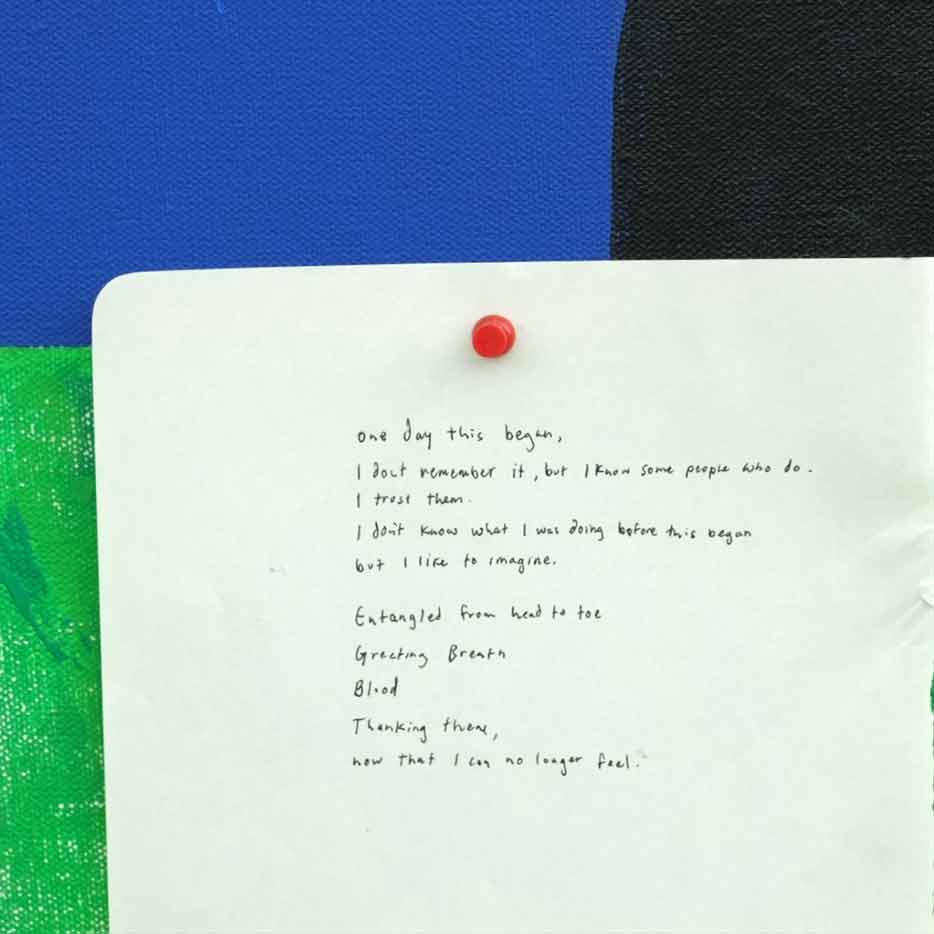 one day this began,
I don't remember it, but I know some people who do.
I trust them.
I don't know what I was doing before this began
but I like to imagine.
Entangled from head to toe
Greeting Breath
Blood
Thanking them,
now that I can no longer feel.